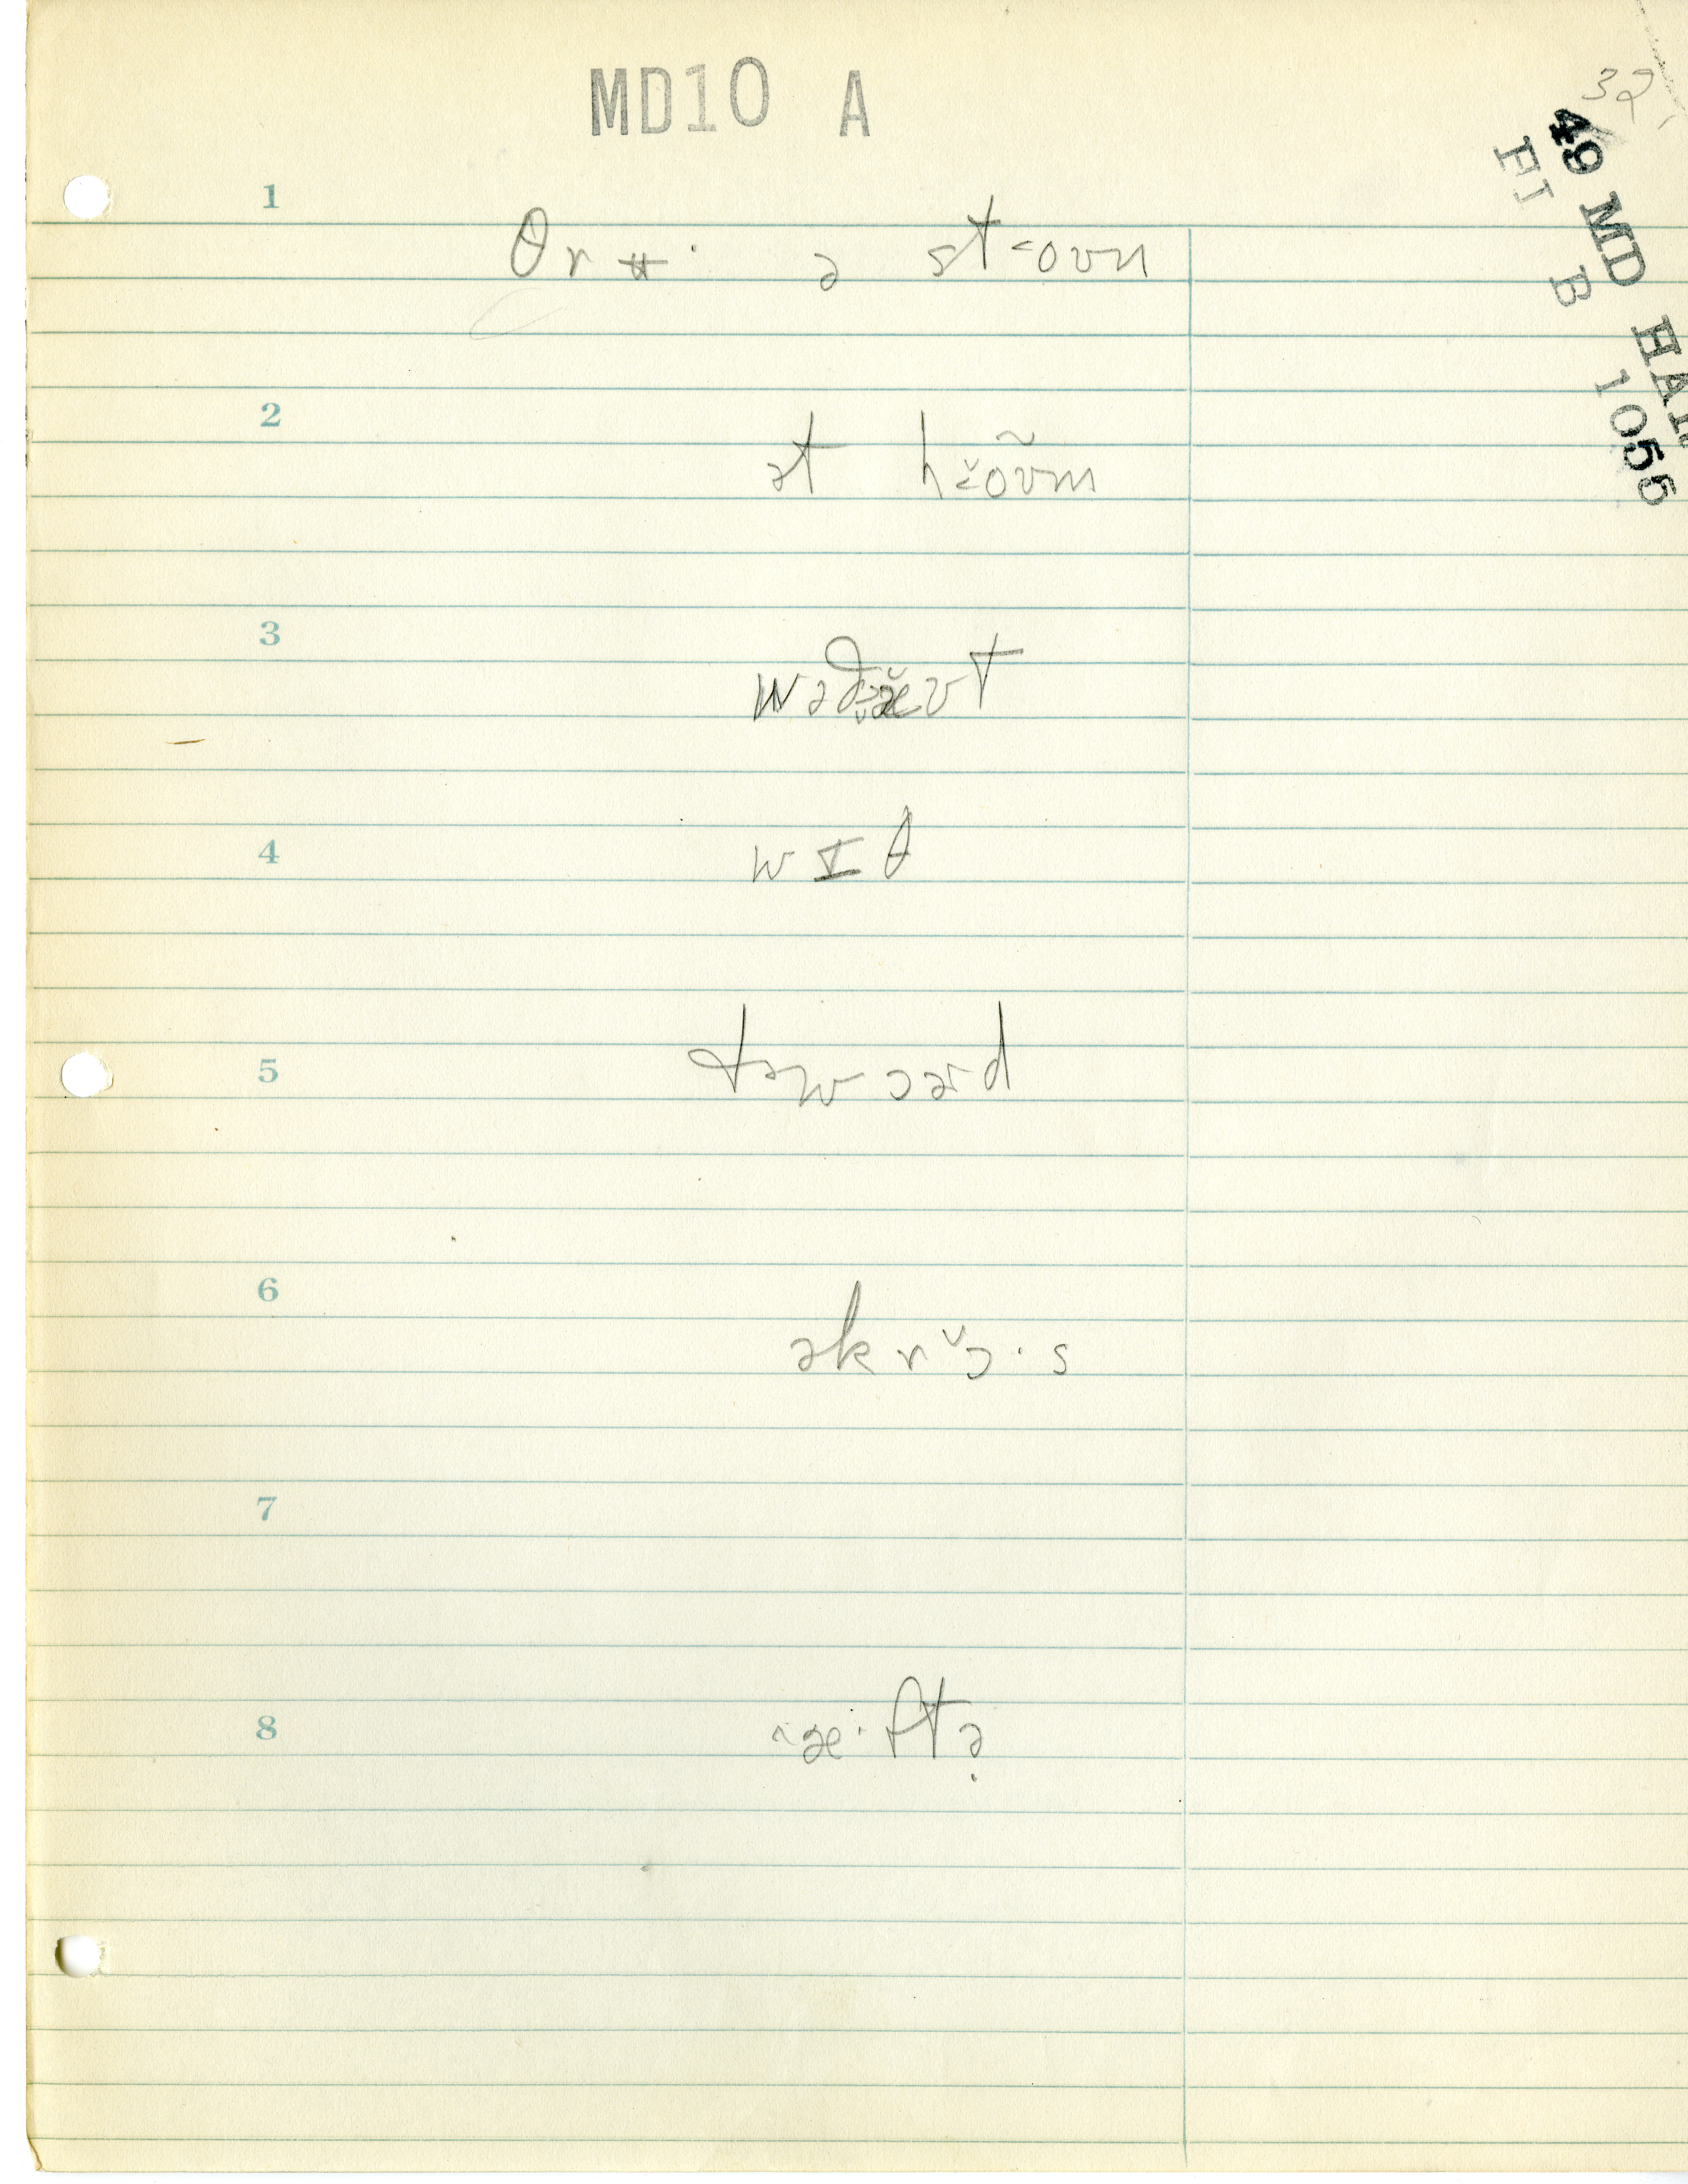 MD10 A
32
49 MD HAR
FI B 1055
1
θrʉ· ə st<oʊn
2
ət h oʊm
3
4
wɪθ
5
təwɔəd
6
əkrɔ·s
7
8
æ·ftə